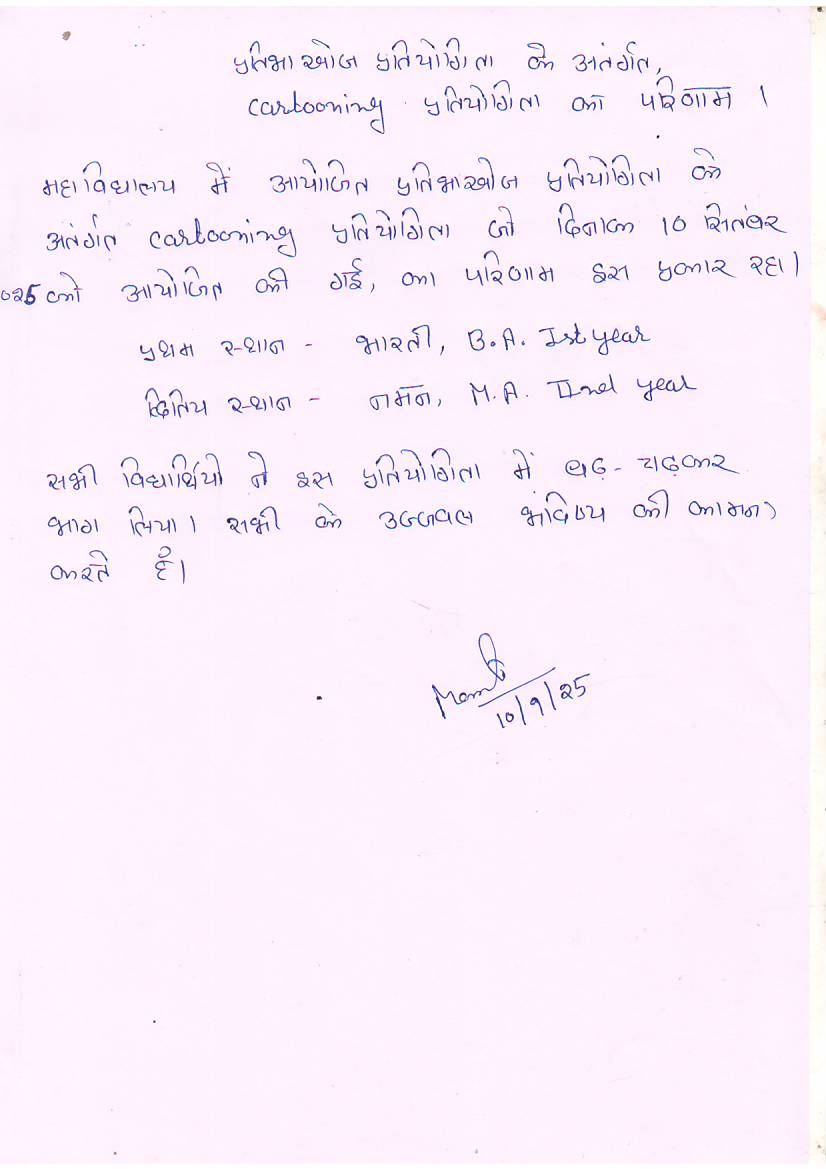 प्रतिभाखोज प्रतियोगिता के अतंर्गत,
cartooning प्रतियोगिता का परिणाम ।
महाविद्यालय में आयोजित प्रतिभाखोज प्रतियोगिता के
अतंर्गत cartooning प्रतियोगिता जो दिनाक 10 सितंबर
025 को आयोजित की गई, का परिणाम इस प्रकार रहा।
प्रथम स्थान - भारती, B.A. Ist year
द्वितिय स्थान - नमन, M.A. IInd year
सभी विद्यार्थियो ने इस प्रतियोगिता में बढ़-चढ़कर
भाग लिया। सभी के उज्जवल भविष्य की कामना
करते हैं।
10/9/25